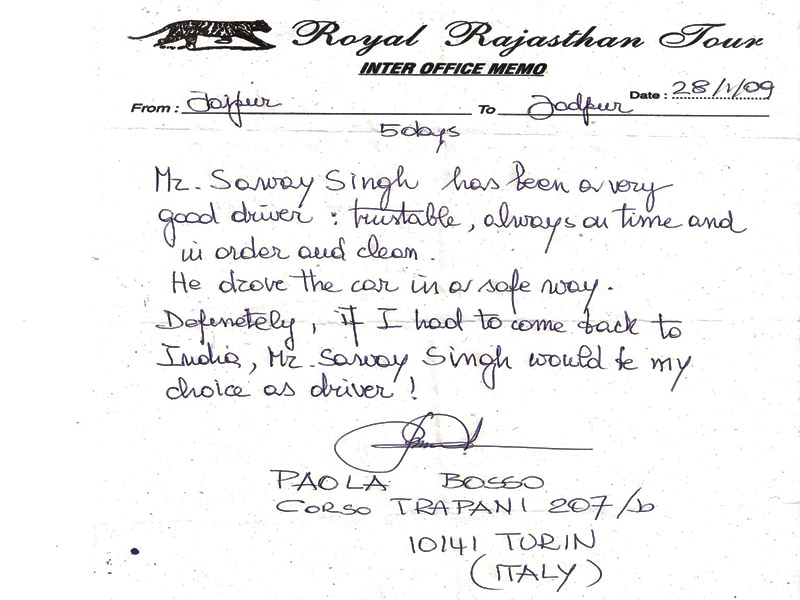 Royal Rajasthan Tour
INTER OFFICE MEMO
Date : 28/1/09
From : Jaipur To Jodpur
5 days
Mr. Saway Singh has been a very
good driver : trustable, always on time and
in order and clean.
He drove the car in a safe way.
Definetely, if I had to come back to
India, Mr. Saway Singh would be my
choice as driver !
PAOLA BOSSO
CORSO TRAPANI 207/b
10141 TURIN
(ITALY)